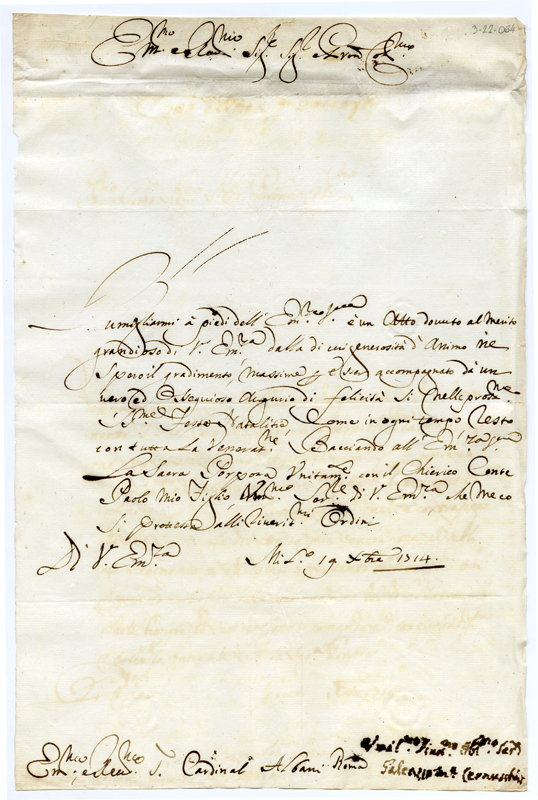 3-22-064
Em.mo e Rev.mo Sig.r Sig.r e Pron Col.mo
Umigliarmi à piedi dell' Em.za V.ra è un Atto dovuto al merito
grandioso di V.ra Em.za dalla di cui generosità d'Animo ne
Spero il gradimento, massime accompagnato dà un
vero ed Ossequioso Augurio di felicità Si nelle pross.me
S.me Feste Natalitie, Come in ogni tempo Resto
con tutta La Venerat.ne Bacciando all' Em.za V.ra
La Sacra Porpora Unitam.te con il Chierico Conte
Paolo Mio Figlio, Ser.re di V.ra Em.za che meco
Si protesta alli Riverit.mi Ordini
Di V.ra Em.za Mil.o 19 Xbre 1714.
Em.mo e Rev.mo S. Cardinal Albani Roma
Hum.mo Dev.mo Obl.mo Ser.re